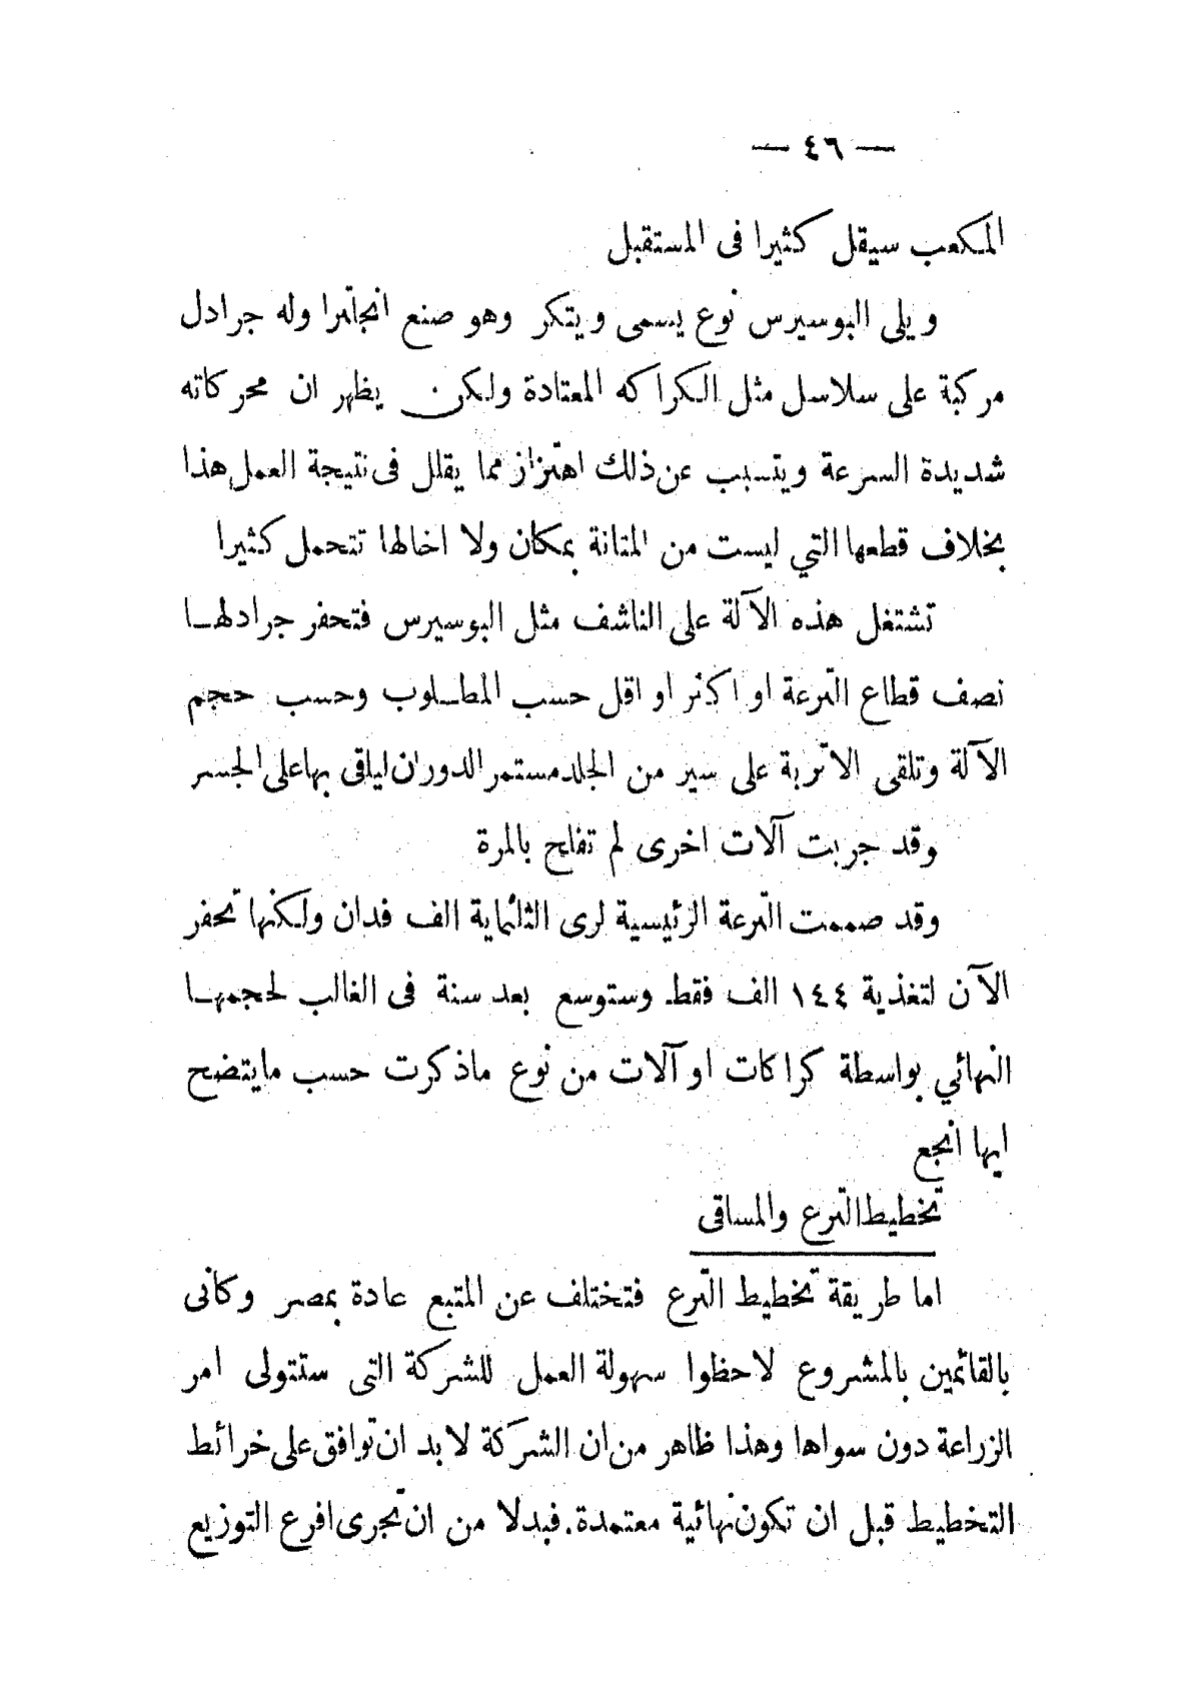 — ٤٦ —
المكعب سيقل كثيرا فى المستقبل
ويلى البوسيرس نوع يسمى ويتكر وهو صنع انجلترا وله جرادل
مركبة على سلاسل مثل الكراكه المعتادة ولكن يظهر ان محركاته
شديدة السرعة ويتسبب عن ذلك اهتزاز مما يقلل فى نتيجة العمل هذا
بخلاف قطعها التي ليست من المتانة بمكان ولا اخالها تتحمل كثيرا
تشتغل هذه الآلة على الناشف مثل البوسيرس فتحفر جرادلهـا
نصف قطاع الترعة او اكثر او اقل حسب المطـلوب وحسب حجم
الآلة وتلقى الاتربة على سير من الجلد مستمر الدوران ليلقى بها على الجسر
وقد جربت آلات اخرى لم تفلح بالمرة
وقد صممت الترعة الرئيسية لرى الثلثماية الف فدان ولكنها تحفر
الآن لتغذية ١٤٤ الف فقط وستوسع بعد سنة فى الغالب لحجمهـا
النهائي بواسطة كراكات او آلات من نوع ماذكرت حسب مايتضح
ايها انجع
تخطيط الترع والمساقى
اما طريقة تخطيط الترع فتختلف عن المتبع عادة بمصر وكأنى
بالقائمين بالمشروع لاحظوا سهولة العمل للشركة التى ستتولى امر
الزراعة دون سواها وهذا ظاهر من ان الشركة لابد ان توافق على خرائط
التخطيط قبل ان تكون نهائية معتمدة. فبدلا من ان تجرى افرع التوزيع